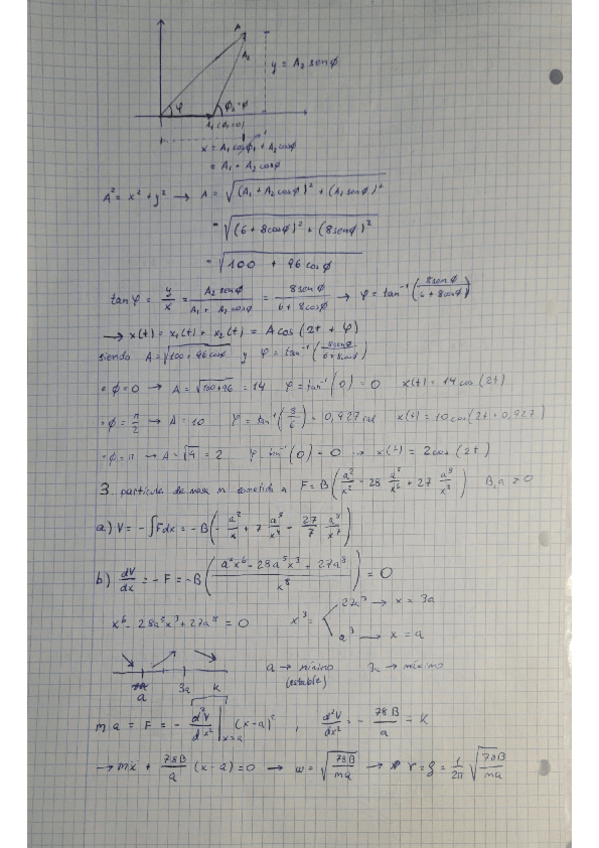 A
A₂
y = A₂ senϕ
φ
ϕ₂ = ϕ
A₁ (ϕ₁=0)
x = A₁ cosϕ₁ + A₂ cosϕ
= A₁ + A₂ cosϕ
A² = x² + y² → A = √((A₁ + A₂ cosϕ)² + (A₂ senϕ)²)
= √((6 + 8cosϕ)² + (8senϕ)²)
= √(100 + 96 cosϕ)
tanφ = y/x = A₂ senϕ/(A₁ + A₂ cosϕ) = 8senϕ/(6 + 8cosϕ) → φ = tan⁻¹(8senϕ/(6 + 8cosϕ))
→ x(t) = x₁(t) + x₂(t) = A cos(2t + φ)
siendo A = √(100 + 96cosϕ) y φ = tan⁻¹(8senϕ/(6+8cosϕ))
ϕ = 0 → A = √(100+96) = 14 φ = tan⁻¹(0) = 0 x(t) = 14 cos(2t)
ϕ = π/2 → A = 10 φ = tan⁻¹(8/6) = 0,927 rad x(t) = 10 cos(2t + 0,927)
ϕ = π → A = √4 = 2 φ = tan⁻¹(0) = 0 → x(t) = 2cos(2t)
3. partícula de masa m sometida a F = B(a²/x² - 28 a⁵/x⁵ + 27 a⁸/x⁸) B, a > 0
a) V = -∫Fdx = -B(-a²/x + 7 a⁵/x⁴ - 27/7 a⁸/x⁷)
b) dV/dx = -F = -B((a²x⁶ - 28a⁵x³ + 27a⁸)/x⁸) = 0
x⁶ - 28a³x³ + 27a⁶ = 0 x³ = 27a³ → x = 3a
a³ → x = a
a 3a a → mínimo 3a → máximo
(estable)
K
m a = F = - d²V/dx² |x=a (x-a)² , d²V/dx² = - 78B/a = K
→ mx + 78B/a (x-a) = 0 → ω = √(78B/ma) → = 1/2π √(78B/ma)